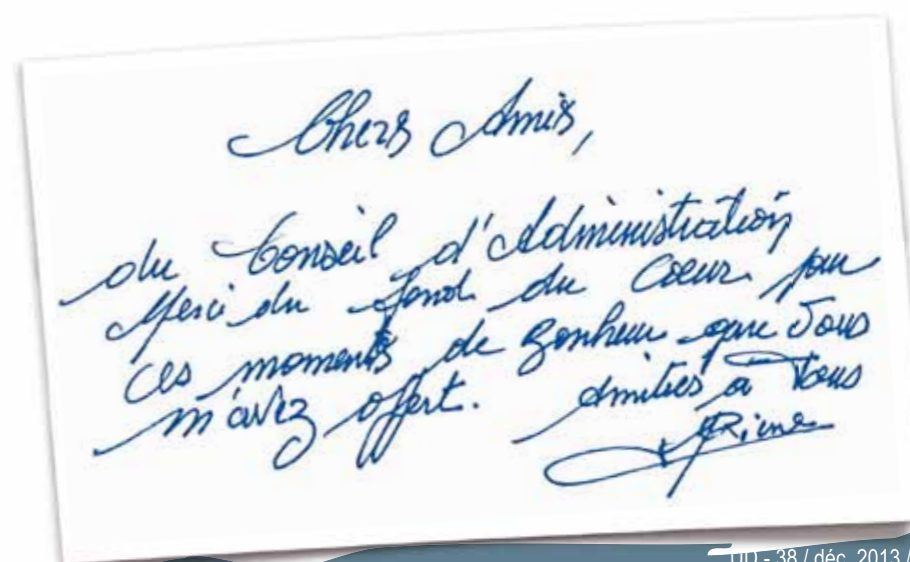 Chers Amis,
du Conseil d'Administration
Merci du fond du Coeur pour
ces moments de Bonheur que Vous
m'avez offert. Amitiés a Tous
UD - 38 / déc. 2013 /